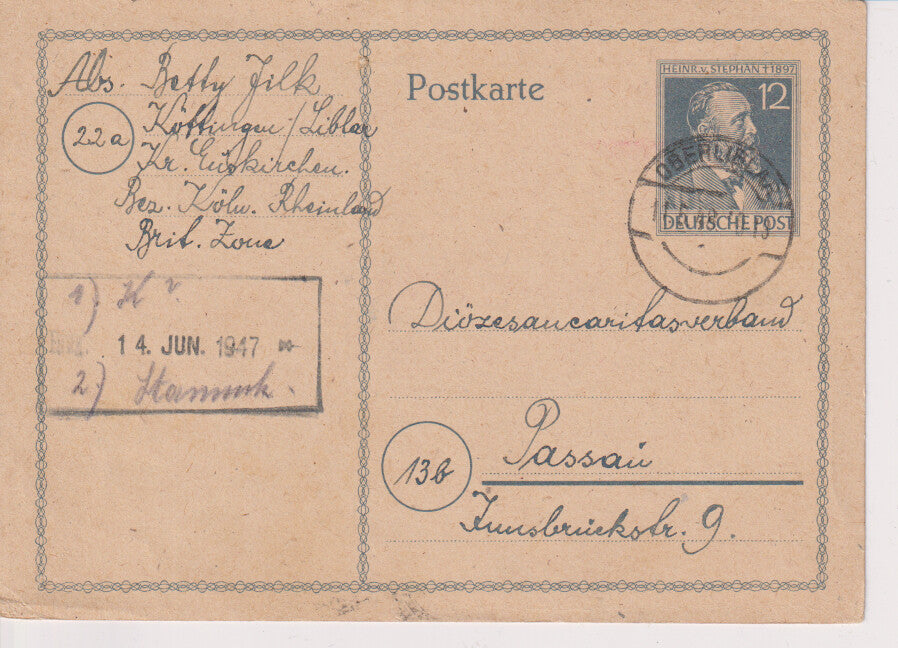 Abs. Betty Jilk
22a
Köttingen / Liblar
Kr. Euskirchen.
Bez. Köln. Rheinland
Brit. Zone
Postkarte
HEINR. v. STEPHAN † 1897
12
DEUTSCHE POST
1) K
14. JUN. 1947
2)
Diözesancaritasverband
13b
Passau
Innsbruckstr. 9.